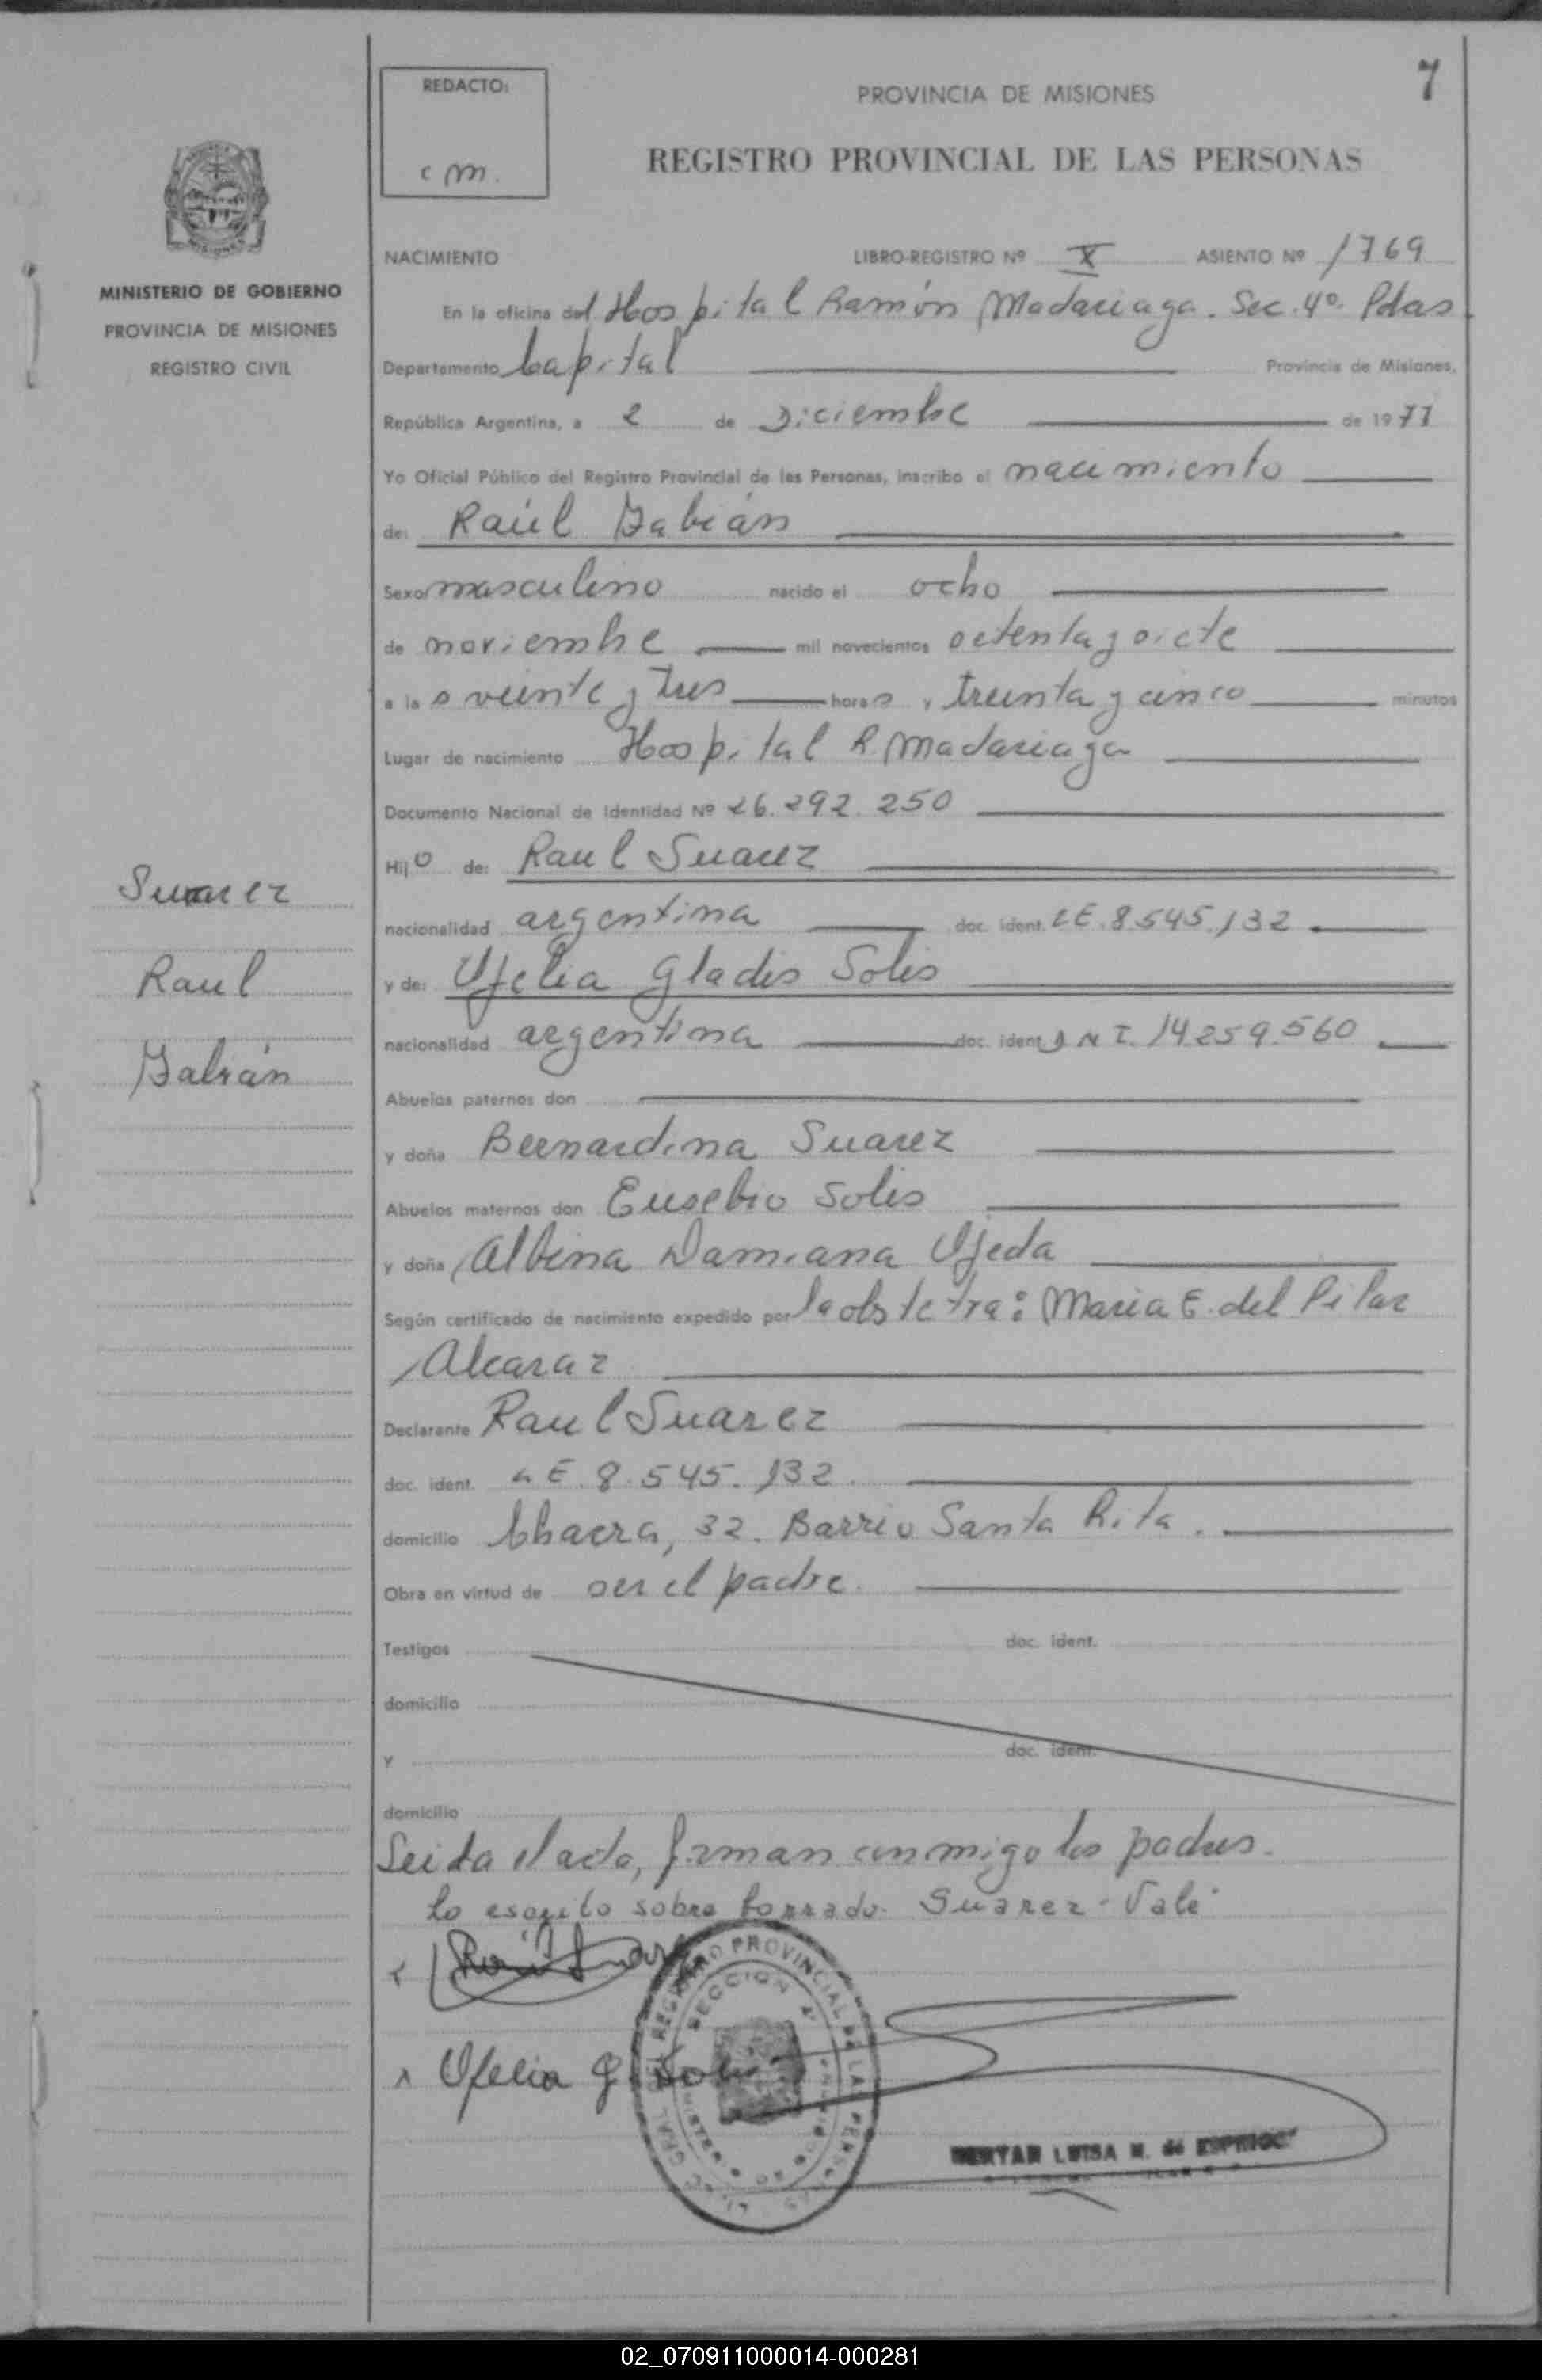 7
REDACTO:
C M.
PROVINCIA DE MISIONES
REGISTRO PROVINCIAL DE LAS PERSONAS
MINISTERIO DE GOBIERNO
PROVINCIA DE MISIONES
REGISTRO CIVIL
NACIMIENTO LIBRO-REGISTRO Nº X ASIENTO Nº 1769
En la oficina del Hospital Ramón Madariaga. Sec. 4º. Pdas
Departamento Capital Provincia de Misiones,
República Argentina, a 2 de Diciembre de 1977
Yo Oficial Público del Registro Provincial de las Personas, inscribo el nacimiento
de: Raúl Fabián
Sexo masculino nacido el ocho
de noviembre mil novecientos setenta y siete
a las veinte y tres horas y treinta y cinco minutos
Lugar de nacimiento Hospital R. Madariaga
Documento Nacional de Identidad Nº 26.292.250
Hijo de: Raul Suarez
nacionalidad argentina doc. ident. LE. 8.545.132
y de: Ofelia Gladis Solis
nacionalidad argentina doc. ident. D N I. 14.259.560
Abuelos paternos don
y doña Bernardina Suarez
Abuelos maternos don Eusebio Solis
y doña Albina Damiana Ojeda
Según certificado de nacimiento expedido por la obstetra: Maria E. del Pilar
Alcaraz
Declarante Raul Suarez
doc. ident. LE. 8.545.132.
domicilio Chacra, 32. Barrio Santa Rita.
Obra en virtud de ser el padre.
Testigos doc. ident.
domicilio
y doc. ident.
domicilio
Leida el acta, firman conmigo los padres.
Lo escrito sobre borrado. Suarez - Vale
Raúl Suarez
Ofelia G. Solis
REGISTRO PROVINCIAL DE LAS PERSONAS
SECCION 4º
LUISA M. de
Suarez
Raul
Fabián
02_070911000014-000281